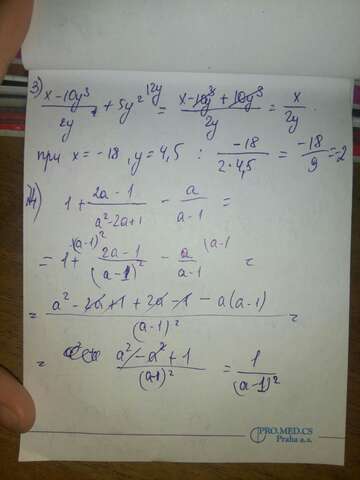 3) (x-10y³)/2y + 5y² ^(2y = (x-10y³+10y³)/2y = x/2y .
при x=-18, y=4,5 : -18/(2·4,5) = -18/9 = -2
4) 1 + (2a-1)/(a²-2a+1) - a/(a-1) =
= 1 ^((a-1)² + (2a-1)/(a-1)² - a/(a-1) ^(a-1 =
= (a²-2a+1+2a-1-a(a-1))/(a-1)² =
= (a²-a²+1)/(a-1)² = 1/(a-1)²
PRO.MED.CS
Praha a.s.